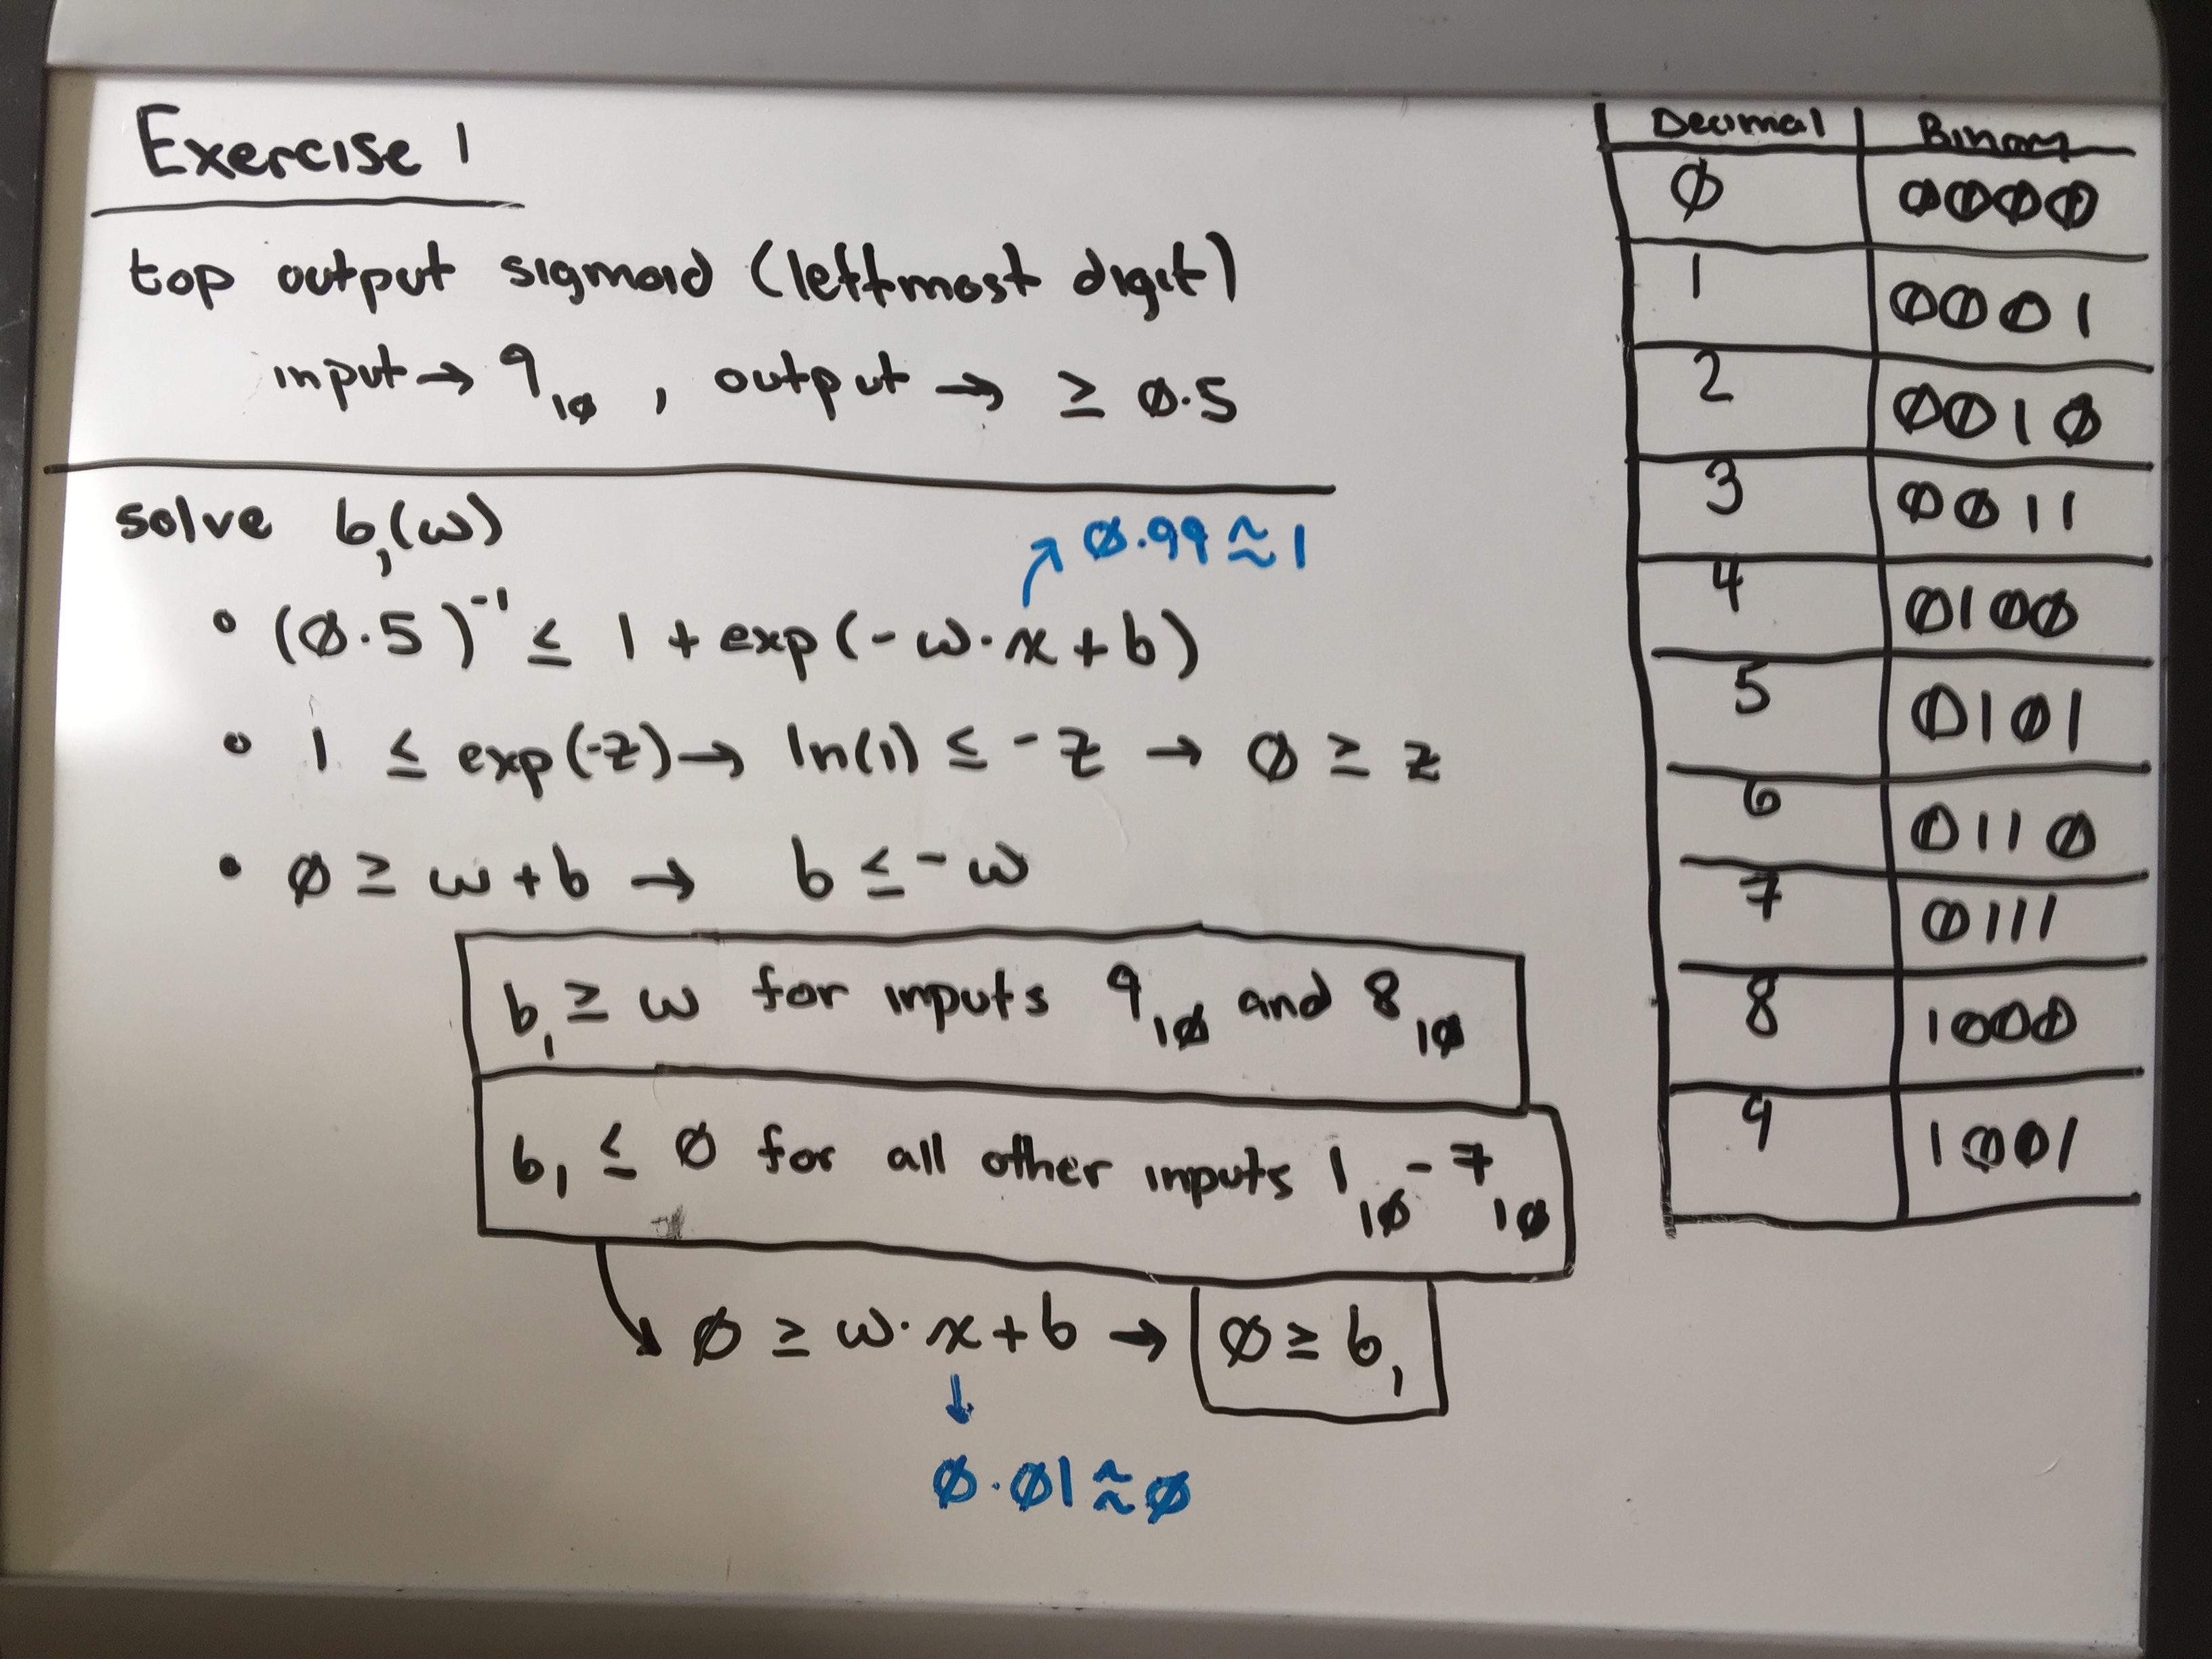 Exercise 1
top output sigmoid (leftmost digit)
input → 9₁₀ , output → ≥ 0.5
solve b₁(ω)
0.99 ≈ 1
• (0.5)⁻¹ ≤ 1 + exp(-ω·x+b)
• 1 ≤ exp(-z) → ln(1) ≤ -z → 0 ≥ z
• 0 ≥ ω+b → b ≤ -ω
b₁ ≥ ω for inputs 9₁₀ and 8₁₀
b₁ ≤ 0 for all other inputs 1₁₀-7₁₀
0 ≥ ω·x+b → 0 ≥ b₁
0.01 ≈ 0
Decimal Binary
0 0000
1 0001
2 0010
3 0011
4 0100
5 0101
6 0110
7 0111
8 1000
9 1001